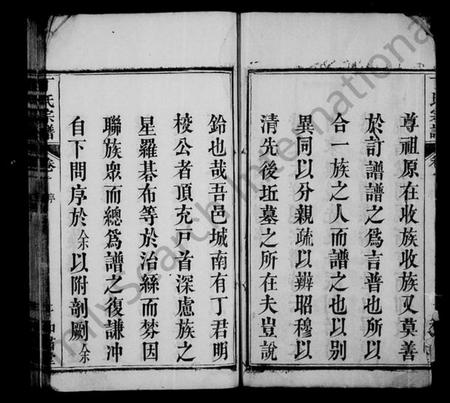 尊祖原在收族收族又莫善
於訂譜譜之為言普也所以
合一族之人而譜之也以別
異同以分親疏以辨昭穆以
清先後坵墓之所在夫豈說
鈴也哉吾邑城南有丁君明
梭公者頂充戸首深慮族之
星羅碁布等於治絲而棼因
聯族眾而總為譜之復謙冲
自下問序於余以附剞劂余
氏宗譜
卷